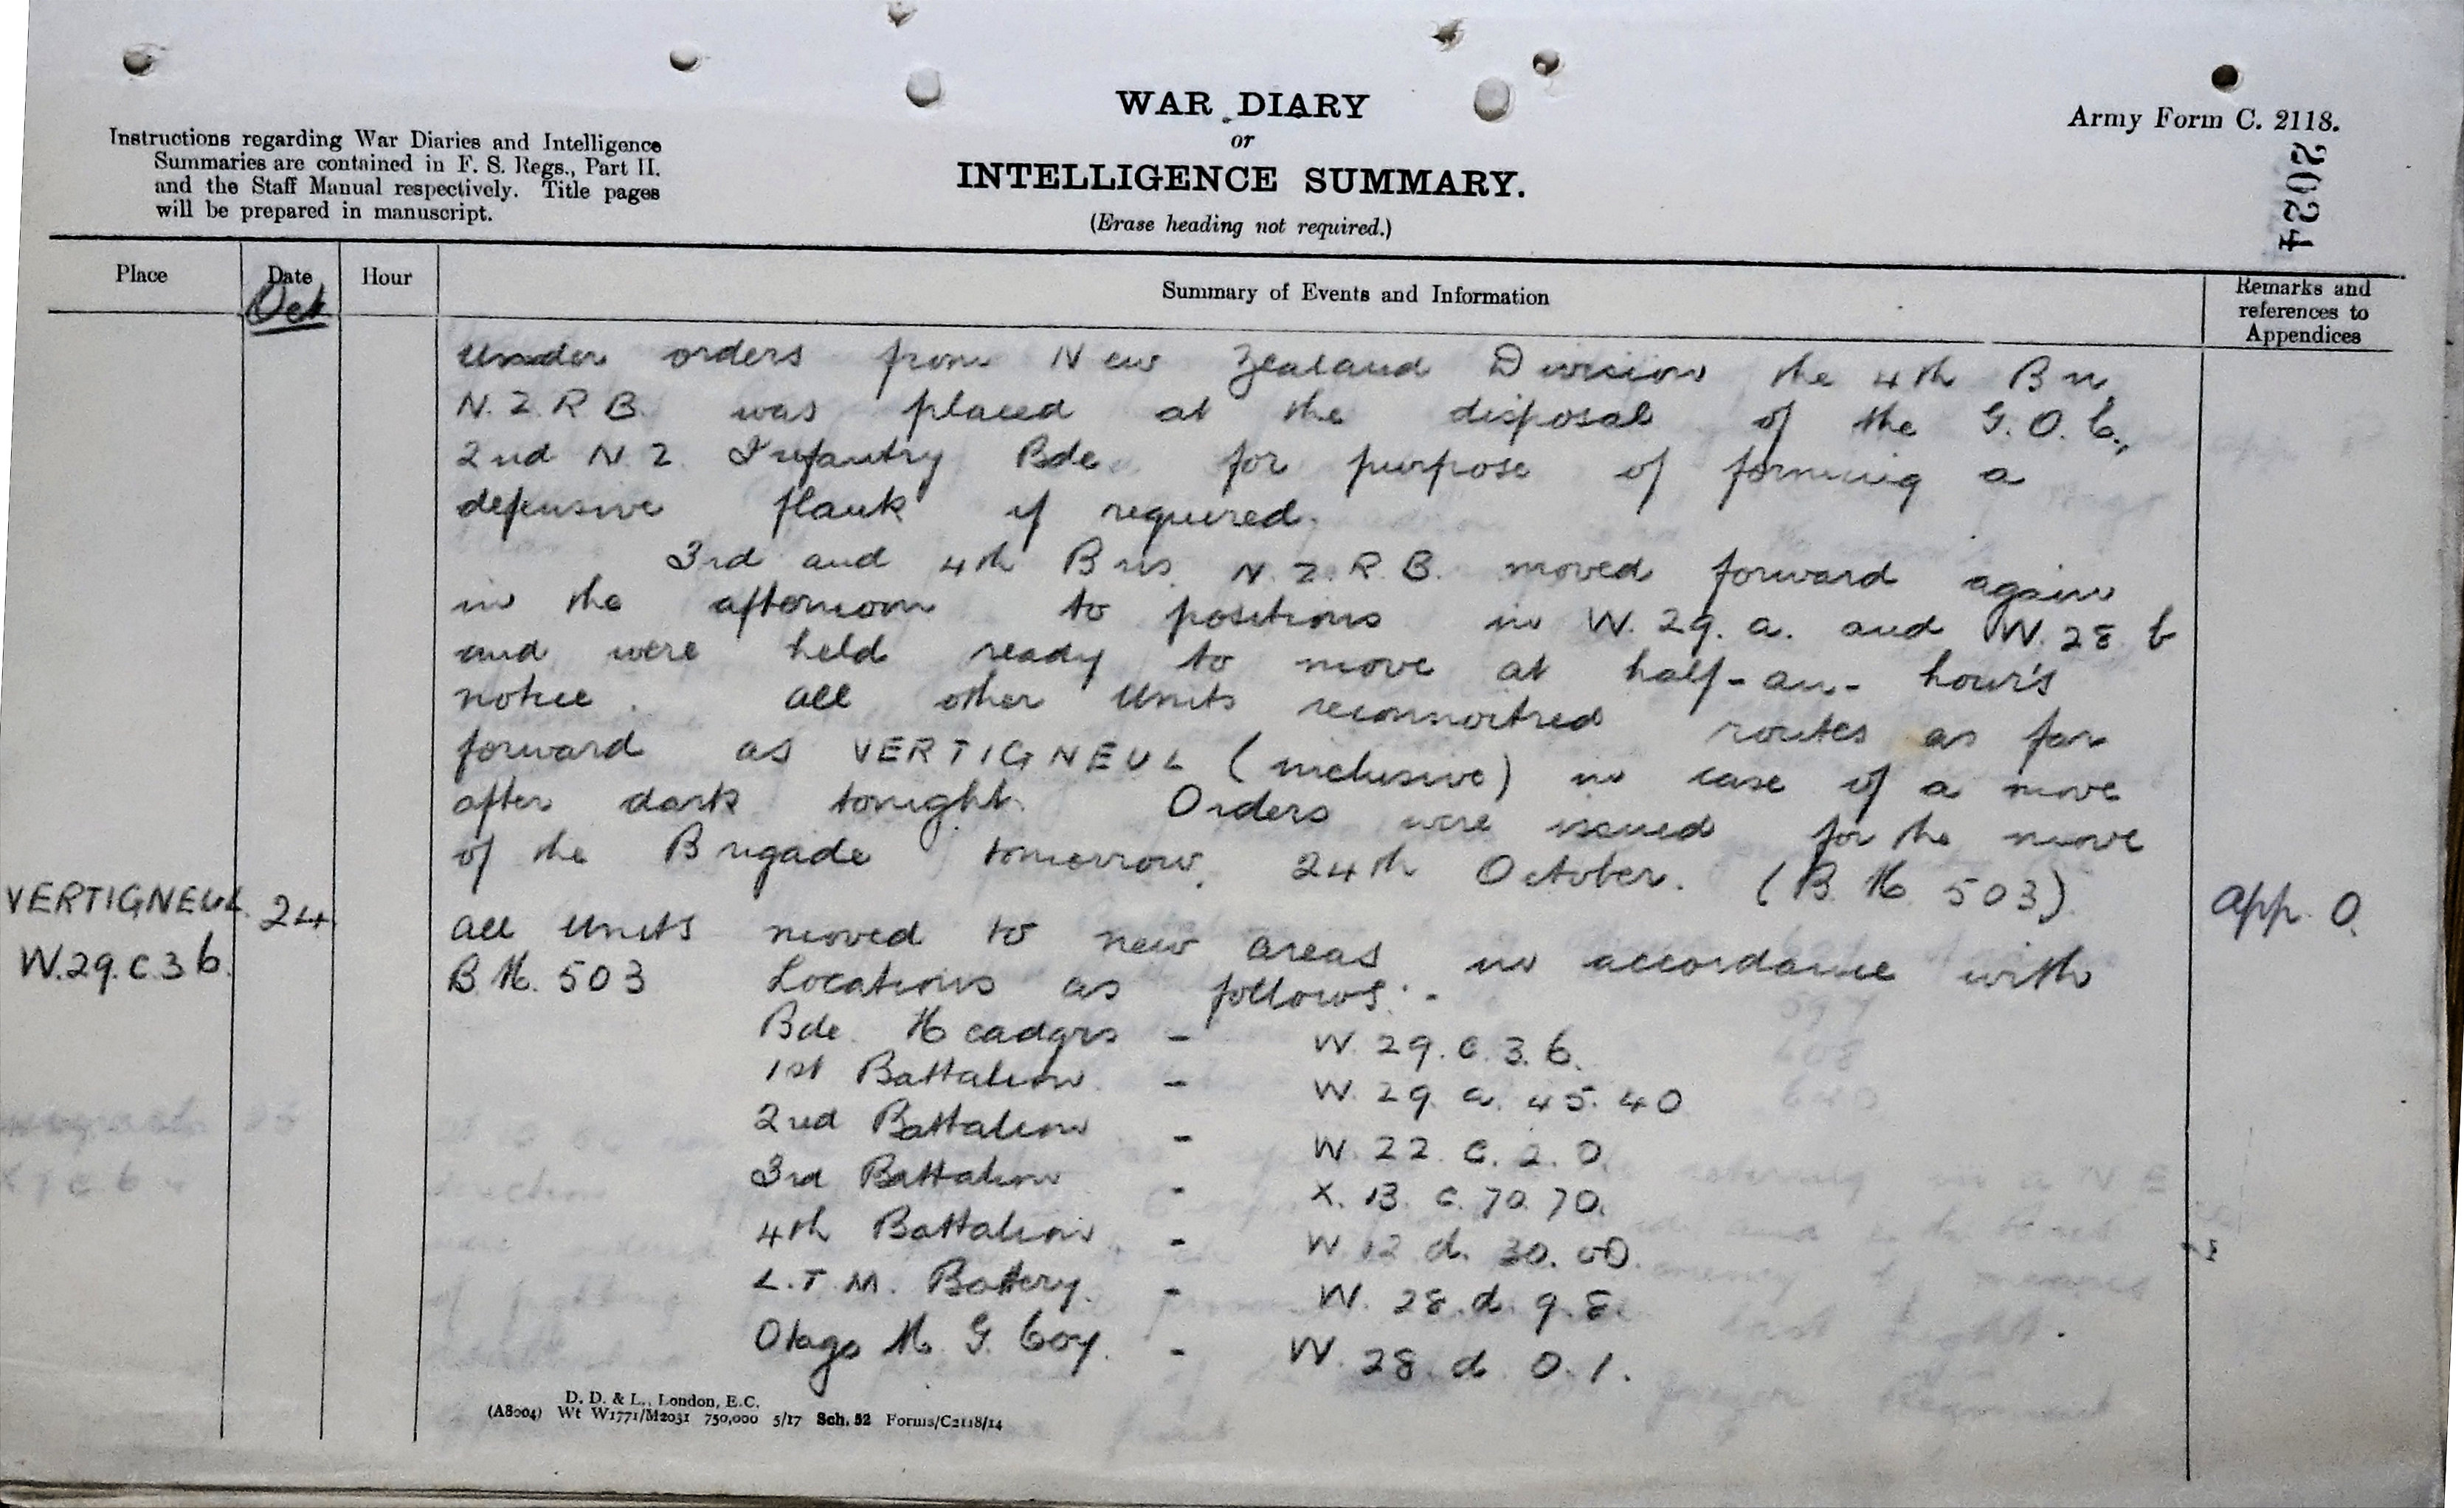 WAR DIARY
or
INTELLIGENCE SUMMARY.
(Erase heading not required.)
Army Form C. 2118.
Instructions regarding War Diaries and Intelligence
Summaries are contained in F. S. Regs., Part II.
and the Staff Manual respectively. Title pages
will be prepared in manuscript.
Place
Date
Hour
Summary of Events and Information
Remarks and
references to
Appendices
Oct
under orders from New Zealand Division the 4th Bn
N.Z.R.B. was placed at the disposal of the G.O.C.,
2nd N.Z. Infantry Bde for purpose of forming a
defensive flank if required.
3rd and 4th Bns. N.Z.R.B. moved forward again
in the afternoon to positions in W.29.a. and W.28 b
and were held ready to move at half-an-hour's
notice. All other units reconnoitred routes as far
forward as VERTIGNEUL (inclusive) in case of a move
after dark tonight. Orders were issued for the move
of the Brigade tomorrow, 24th October. (B.M. 503).
App. O.
VERTIGNEUL 24
W.29.c.3 6.
All units moved to new areas in accordance with
B.M. 503 Locations as follows:-
Bde. Headqrs - W. 29. c. 3. 6.
1st Battalion. - W. 29. a. 45. 40
2nd Battalion - W. 22. c. 2. 0.
3rd Battalion - X. 13. c. 70. 70.
4th Battalion - W. 12 d. 30. 00.
L.T.M. Battery. - W. 28. d. 9. 8.
Otago M. G. Coy. - W. 28. d. 0. 1.
D. D. & L., London, E.C.
(A8004) Wt W1771/M2031 750,000 5/17 Sch. 52 Forms/C2118/14